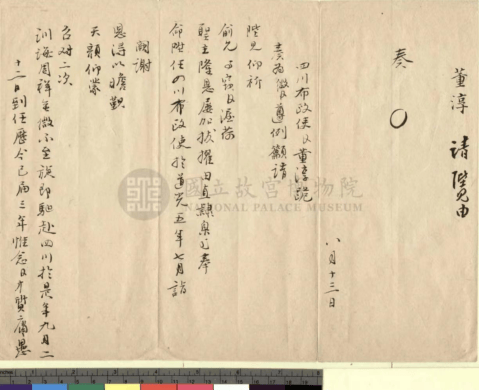 董淳 請陛見由
奏
八月十三日
四川布政使臣董淳跪
奏為微臣遵例籲請
陛見仰祈
俞允事竊臣渥荷
聖主隆恩屢加拔擢由直隸臬司奉
命陞任四川布政使於道光五年七月詣
闕謝
恩得以瞻覲
天顏仰蒙
召對二次
訓誨周詳至微不至旋即馳赴四川於是年九月二
十二日到任歷今已屆三年惟念臣才質庸愚
國立故宮博物院
NATIONAL PALACE MUSEUM